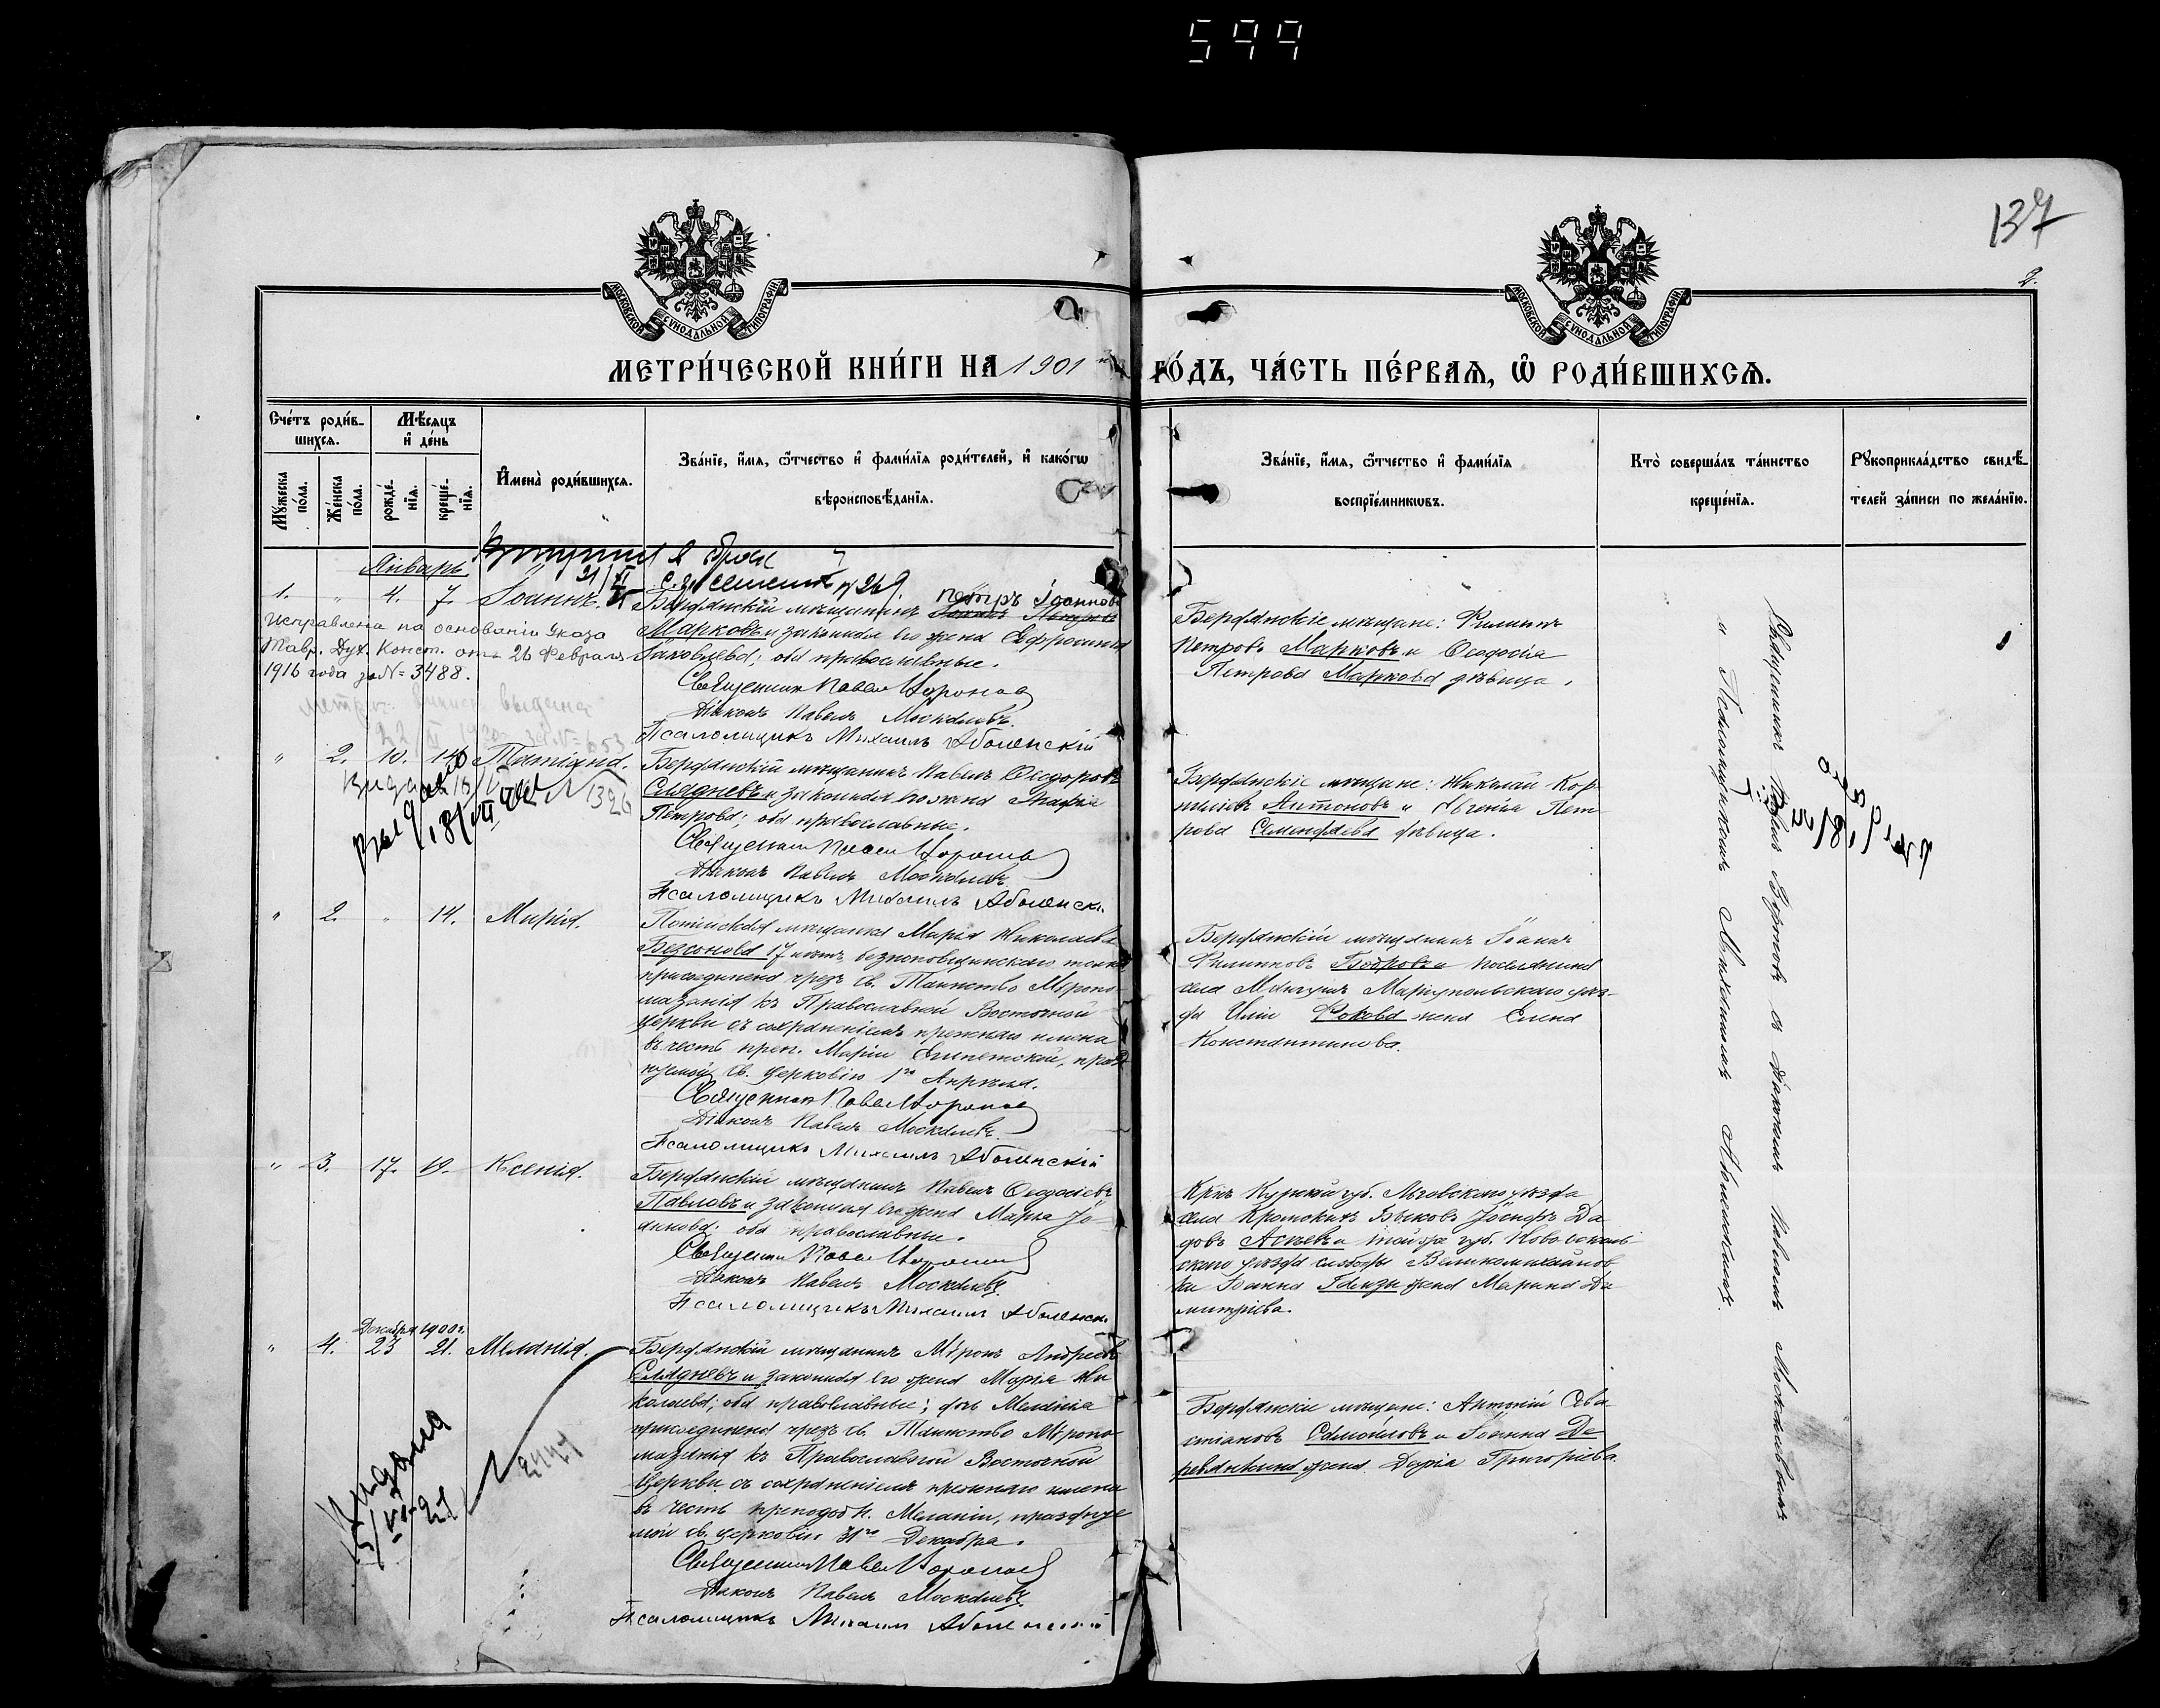 599
137
2.
МОСКОВСКОЙ СѴНОДАЛЬНОЙ ТИПОГРАФІИ
МОСКОВСКОЙ СѴНОДАЛЬНОЙ ТИПОГРАФІИ
МЕТРИ́ЧЕСКОЙ КНИ́ГИ НА 1901 ГО́ДЪ, ЧА́СТЬ ПЕ́РВАѦ, Ѡ҆ РОДИ́ВШИХСѦ.
Сче́тъ роди́в-
шихсѧ.
Мѣ́сѧцъ
и҆ де́нь
Мꙋ́жеска по́ла.
Же́нска по́ла.
рожде́-
нїѧ.
креще́-
нїѧ.
И҆мена̀ роди́вшихсѧ.
Зва́нїе, и҆́мѧ, ѻ҆́тчество и҆ фами́лїѧ роди́телей, и҆ како́гѡ
вѣроисповѣ́данїѧ.
Зва́нїе, и҆́мѧ, ѻ҆́тчество и҆ фами́лїѧ
воспрїе́мникѡвъ.
Кто̀ соверша́лъ та́инство
креще́нїѧ.
Рꙋкоприкла́дство свидѣ́-
телей за́писи по жела́нїю.
Январь.
1. " 4. 7. Іоаннъ.
Бердянскій мѣщанинъ Петръ Іоанновъ
Марковъ и законная его жена Евфросинія
Яковлева; оба православные.
Священникъ Павелъ Воронов
Діаконъ Павелъ Москалевъ.
Псаломщикъ Михаилъ Аболенскій
Исправлена на основаніи Указа
Тавр. Дух. Конст. отъ 26 Февраля
1916 года за № 3488.
Бердянскіе мѣщане: Филиппъ
Петровъ Марковъ и Ѳеодосія
Петрова Маркова дѣвица.
" 2. 10. 14. Татіана.
Бердянскій мѣщанинъ Павелъ Ѳеодоровъ
Слядневъ и законная его жена
Петрова; оба православные.
Священникъ Павелъ Воронов
Діаконъ Павелъ Москалевъ
Псаломщикъ Михаилъ Аболенскі
1326
Бердянскіе мѣщане: Николай Кор-
ниловъ Антоновъ и Евгенія Пет
рова дѣвица.
" 2. " 14. Марія.
мѣщанка Марія Николаева
Безсонова 17 лѣтъ безпоповщинскаго толка
присоединена чрезъ св. Таинство Мѵропо-
мазанія къ Православной Восточной
Церкви съ сохраненіемъ прежняго имени
въ честь преп. Маріи Египетской, празд
нуемой св. церковію 1го Апрѣля.
Священникъ Павелъ Воронов
Діаконъ Павелъ Москалевъ.
Псаломщикъ Михаилъ Аболенскій
Бердянскій мѣщанинъ Іоаннъ
Филипповъ Бобровъ и поселянина
села Мангушъ Маріупольскаго уѣз-
да Иліи жена Елена
Константинова.
" 3. 17. 19. Ксенія.
Бердянскій мѣщанинъ Павелъ Ѳеодосіевъ
Павловъ и законная его жена Марѳа Іо-
аннова; оба православные.
Священникъ Павелъ Воронов
Діаконъ Павелъ Москалевъ
Псаломщикъ Михаилъ Аболенскі
Крнъ Курской губ. Льговскаго уѣзда
села Быковъ Іосифъ Да
довъ и той же губ. Новооскол
скаго уѣзда слободы Великомихайлов
ки Іоанна жена Марина Ди
митріева.
Декабря 1900 г.
" 4. 23 21. Меланія.
Бердянскій мѣщанинъ Мѵронъ Андреевъ
Слядневъ и законная его жена Марія Ни
колаева; оба православные; дочь Меланія
присоединена чрезъ св. Таинство Мѵропо
мазанія къ Православной Восточной
Церкви съ сохраненіемъ прежняго имени
въ честь преподобн. Меланіи, праздуе
мой св. церковію 31го Декабря.
Священникъ Павелъ Воронов
Діаконъ Павелъ Москалевъ.
Псаломщикъ Михаилъ Аболенскій
Видана
Бердянскіе мѣщане: Антоній Сева
стіановъ Самойловъ и Іоанна Де
ревянкина жена Дарія Григоріева.
Священникъ Павелъ Воронов съ діакономъ Павломъ Москалевымъ
и Псаломщикомъ Михаиломъ Аболенскимъ.